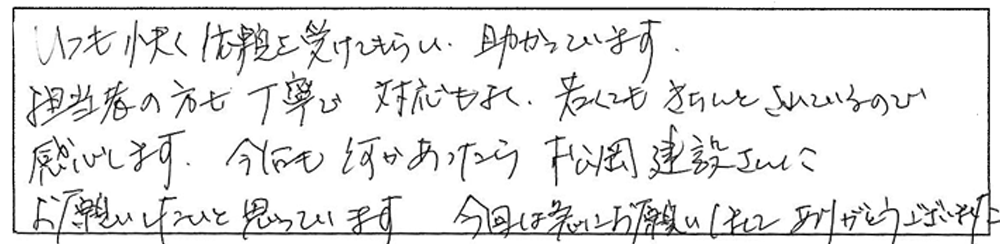 いつも快く依頼を受けてもらい、助かっています。
担当者の方も丁寧で対応もよく、若くてもきちんとされているので
感心します。今后も何かあったら松岡建設さんに
お願いしたいと思っています 今回は急にお願いしまして ありがとうございました